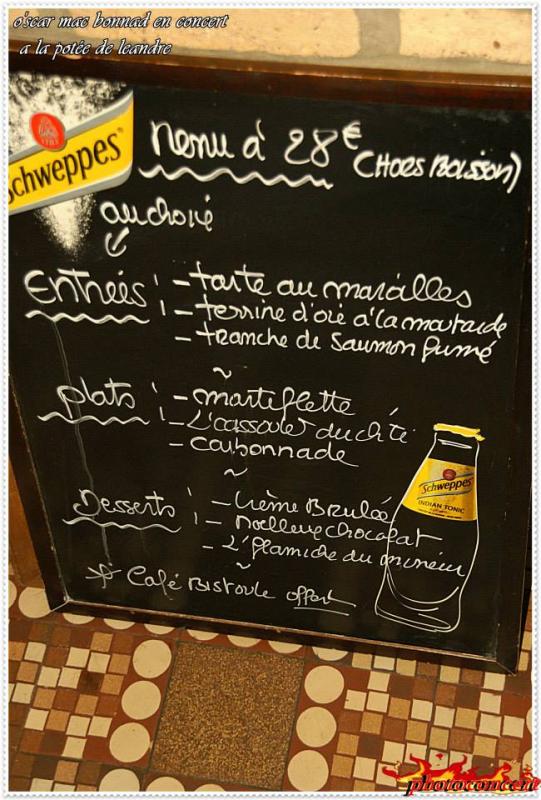 o'scar mac bonnad en concert
a la potée de leandre
Schweppes
Menu à 28€ (HORS BOISSON)
au choix
Entrées : - tarte au maroilles
- terrine d'oie à la moutarde
- tranche de Saumon fumé
~
plats : - martiflette
- L'cassoulet du ch'ti
- carbonnade
~
Desserts : - Crème Brulée
- Moelleux chocolat
- L'flamiche du mineur
~
* Café Bistoule offert
Schweppes
INDIAN TONIC
photoconcert